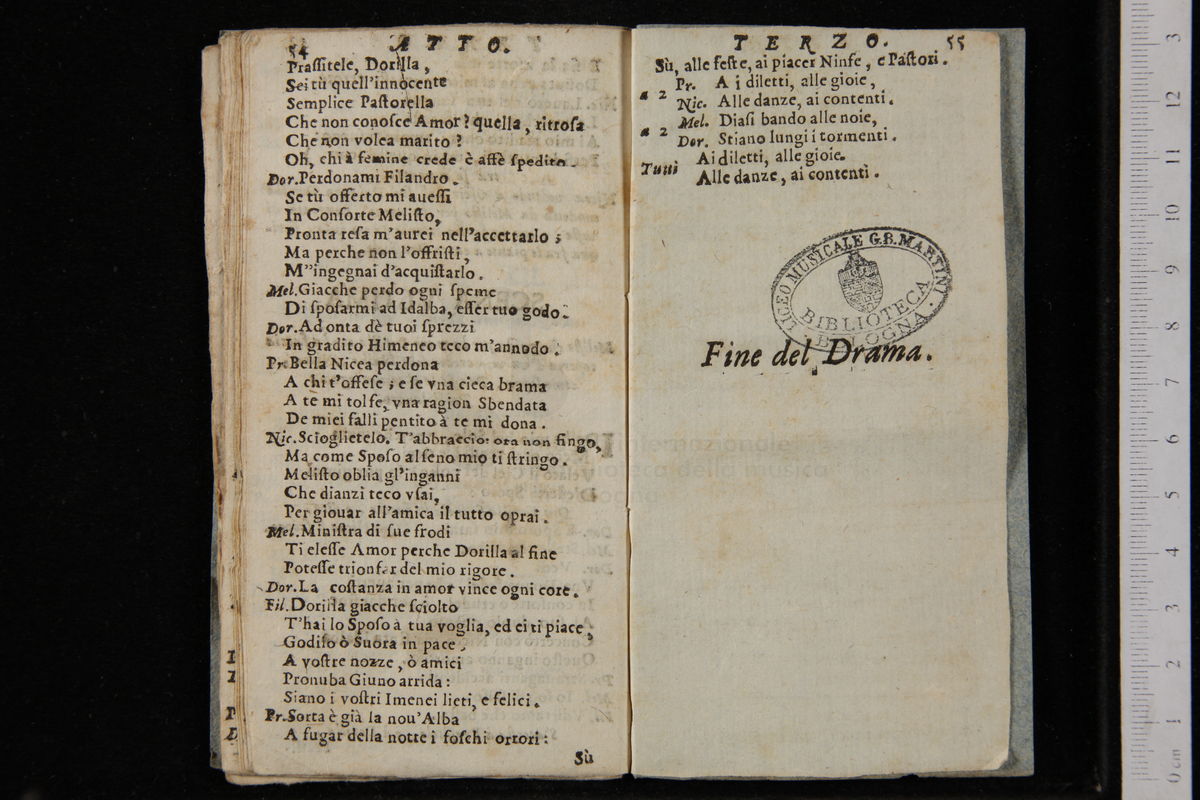 54 ATTO.
Praſſitele, Dorilla,
Sei tù quell'innocente
Semplice Paſtorella
Che non conoſce Amor? quella, ritroſa
Che non volea marito?
Oh, chi à femine crede è affè ſpedito.
Dor.Perdonami Filandro.
Se tù offerto mi aueſſi
In Conſorte Meliſto,
Pronta reſa m'aurei nell'accettarlo;
Ma perche non l'offriſti,
M"ingegnai d'acquiſtarlo.
Mel.Giacche perdo ogni ſpeme
Di ſpoſarmi ad Idalba, eſſer tuo godo.
Dor.Ad onta dè tuoi ſprezzi
In gradito Himeneo teco m'annodo.
Pr.Bella Nicea perdona
A chi t'offeſe; e ſe vna cieca brama
A te mi tolſe, vna ragion Sbendata
De miei falli pentito à te mi dona.
Nic.Scioglietelo. T'abbraccio: ora non fingo,
Ma come Spoſo al ſeno mio ti ſtringo.
Meliſto oblia gl'inganni
Che dianzi teco vſai,
Per giouar all'amica il tutto oprai.
Mel.Miniſtra di ſue frodi
Ti eleſſe Amor perche Dorilla al fine
Poteſſe trionfar del mio rigore.
Dor.La coſtanza in amor vince ogni core.
Fil.Dorilla giacche ſciolto
T'hai lo Spoſo à tua voglia, ed ei ti piace,
Godilo ò Suora in pace.
A voſtre nozze, ò amici
Pronuba Giuno arrida:
Siano i voſtri Imenei lieti, e felici.
Pr.Sorta è già la nou'Alba
A fugar della notte i foſchi orrori:
Sù
TERZO. 55
Sù, alle feſte, ai piacer Ninfe, e Paſtori.
a 2 Pr. A i diletti, alle gioie,
Nic. Alle danze, ai contenti.
a 2 Mel. Diaſi bando alle noie,
Dor. Stiano lungi i tormenti.
Tutti Ai diletti, alle gioie.
Alle danze, ai contenti.
LICEO MUSICALE G.B. MARTINI
BIBLIOTECA
· BOLOGNA ·
Fine del Drama.